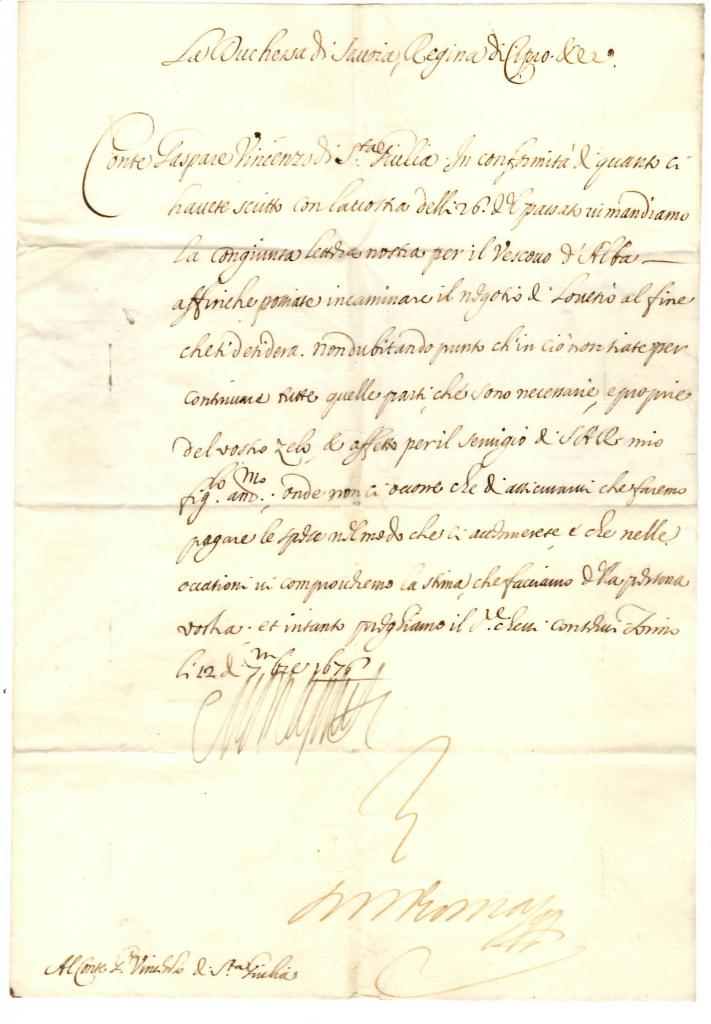 La Duchessa di Sauoia, Regina di Cipro. &c.
Conte Gaspare Vincenzo di S.ta Giulia. In conformità di quanto ci
hauete scritto con la vostra delli 26. del passato ui mandiamo
la congiunta lettera nostra per il Vescouo d'Alba
affinche possiate incaminare il negotio di al fine
che si desidera. Non dubitando punto ch'in ciò non siate per
continuare tutte quelle parti, che sono necessarie, e proprie
del vostro zelo, & affetto per il seruigio di S.A.R. mio
fig.lo am.mo, onde non ci occorre che di assicurarui che faremo
pagare le spese nel modo che ci accennerete, e che nelle
occasioni ui comproueremo la stima, che facciamo della persona
vostra. et intanto preghiamo il S.re che ui conserui. Torino
li 12 di 7mbre 1676
Al Conte G. Vincenzo di S.ta Giulia